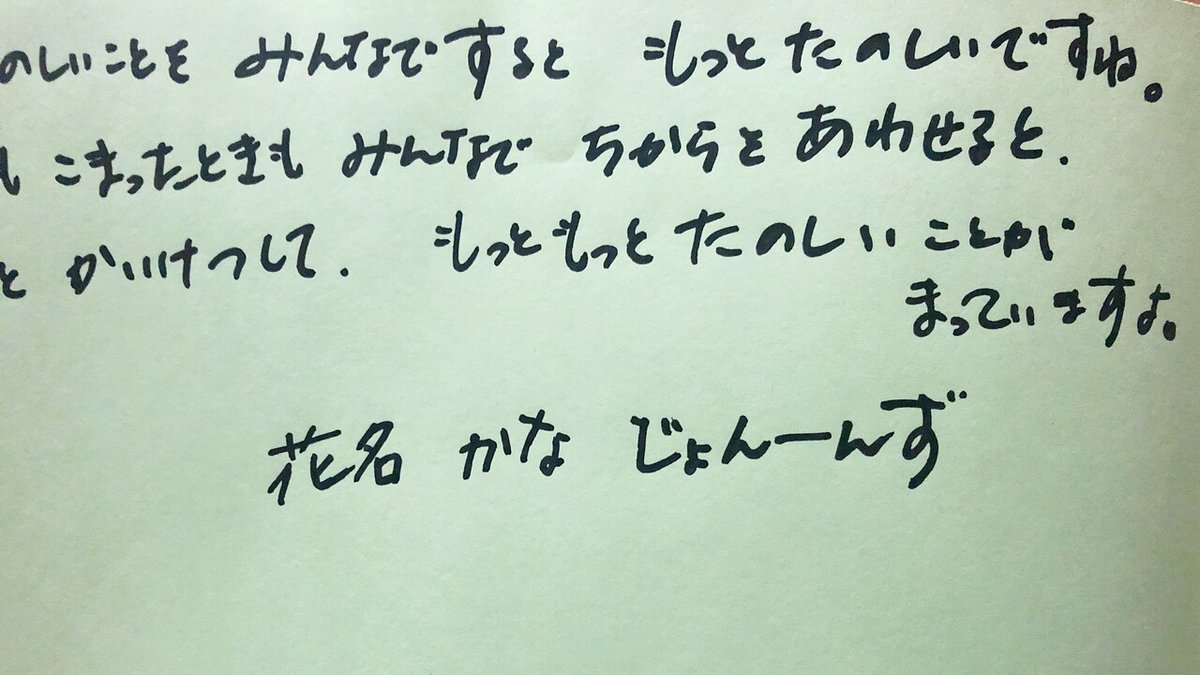 のしいことを みんなですると もっと たのしいですね。
も こまったときも みんなで ちからを あわせると.
と かいけつして. もっともっと たのしい ことが
まっていますよ。
花名 かな じょんーんず